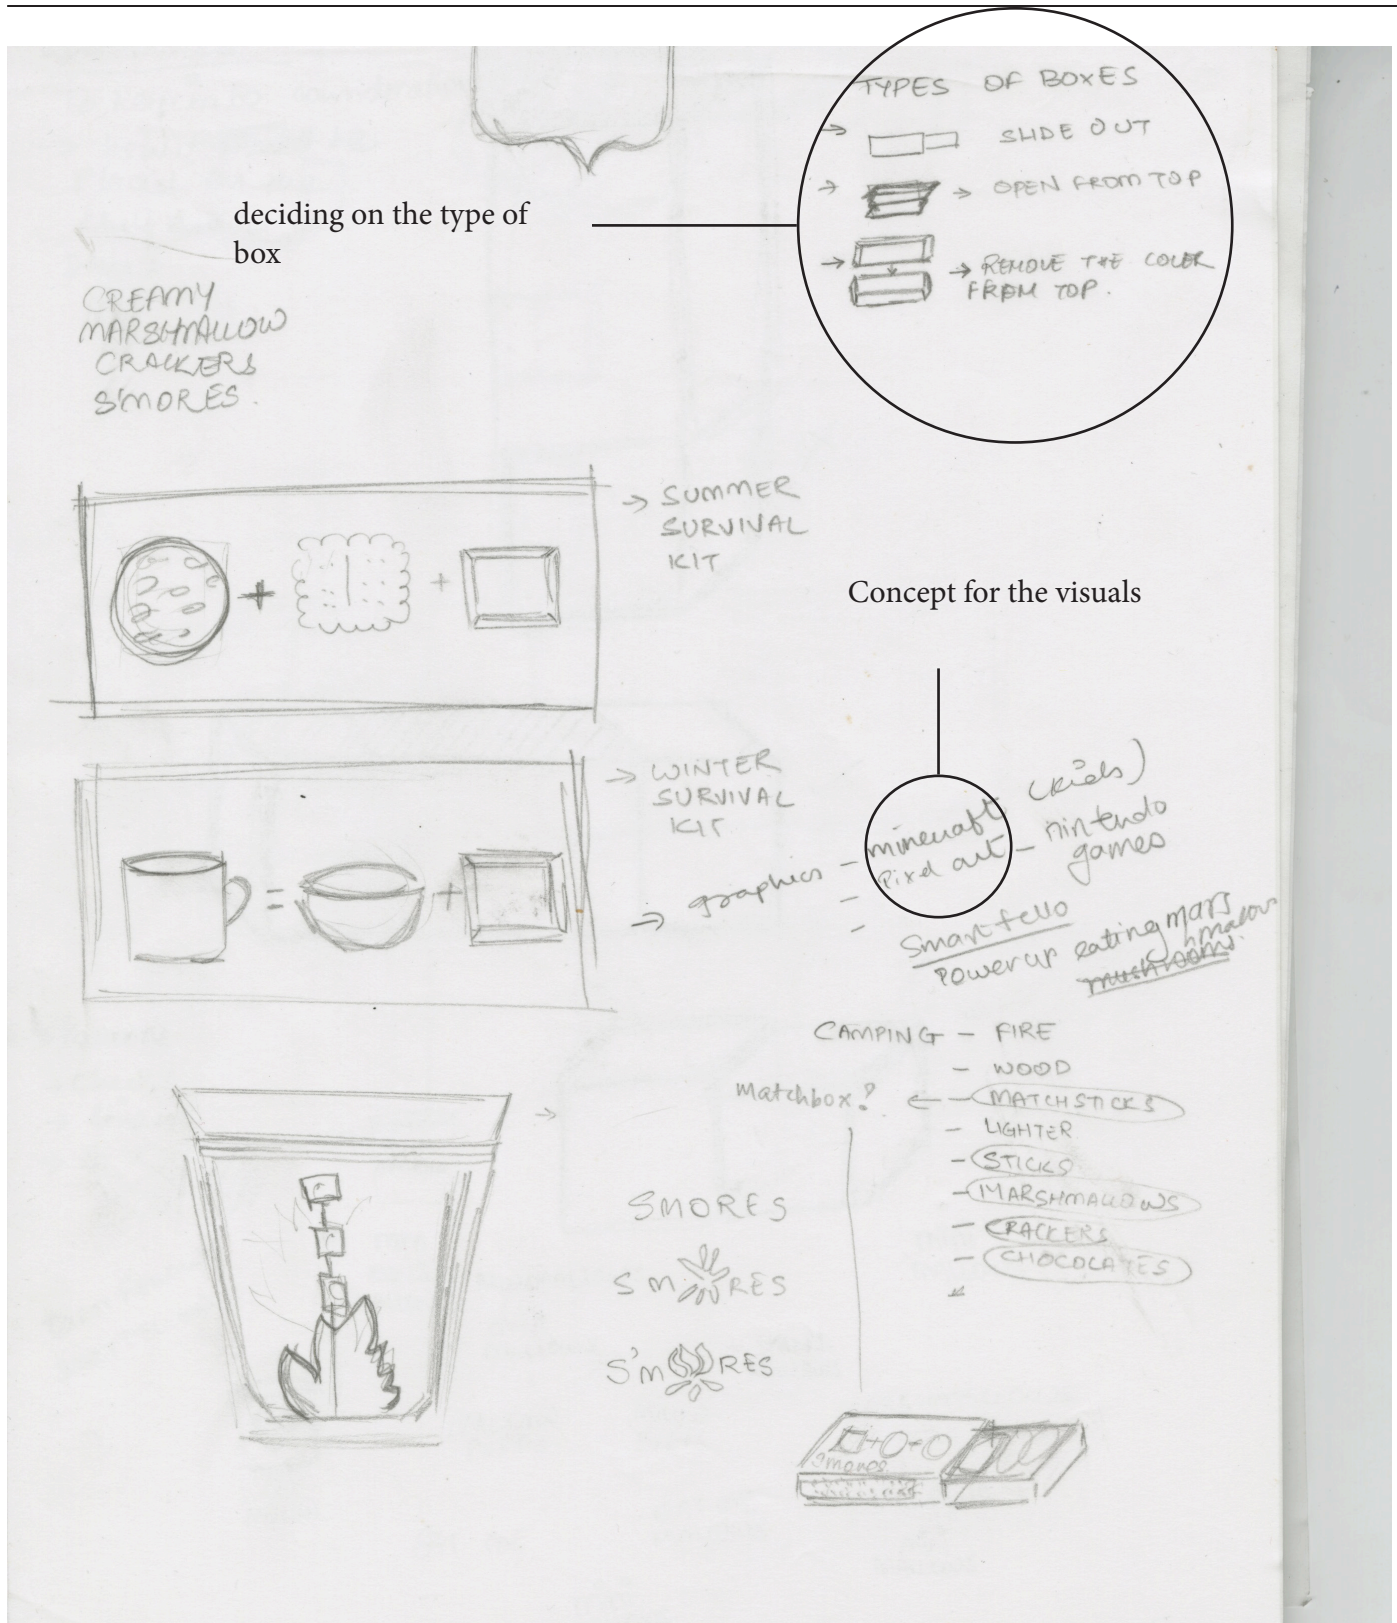 TYPES OF BOXES
→ SLIDE OUT
→ → OPEN FROM TOP
→ → REMOVE THE COVER
FROM TOP.
deciding on the type of
box
CREAMY
MARSHMALLOW
CRACKERS
S'MORES.
→ SUMMER
SURVIVAL
KIT
+ +
Concept for the visuals
→ WINTER
SURVIVAL
KIT
= +
→ graphics - minecraft (kids)
- Pixel art - nintendo
games
-
Smart fello
Power up eating mars
hmallows
mushrooms.
CAMPING - FIRE
- WOOD
matchbox? ← - MATCHSTICKS
- LIGHTER
- STICKS
- MARSHMALLOWS
- CRACKERS
- CHOCOLATES
SMORES
S M RES
S'M RES
+ +
Smores